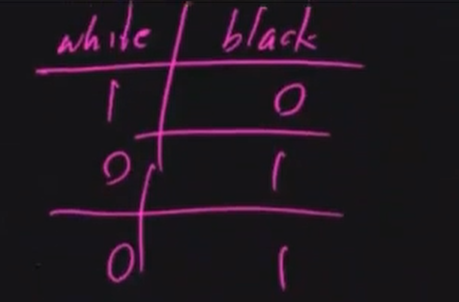 white black
1 0
0 1
0 1